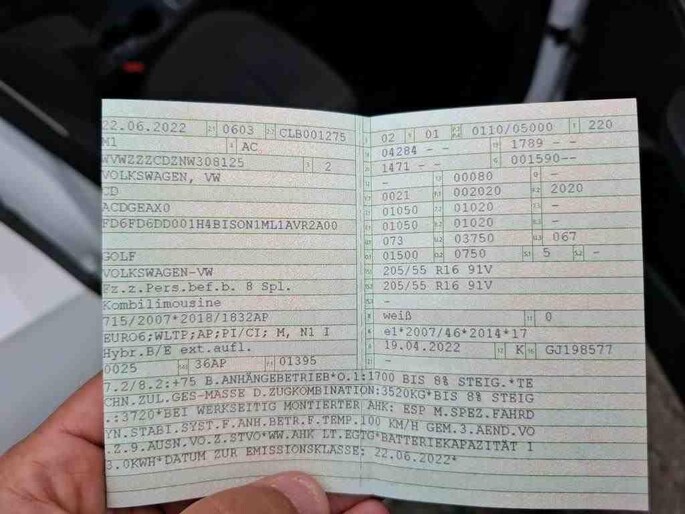 22.06.2022 0603 CLB001275
M1 AC
WVWZZZCDZNW308125 2
VOLKSWAGEN, VW
CD
ACDGEAX0
FD6FD6DD001H4BISON1ML1AVR2A00
GOLF
VOLKSWAGEN-VW
Fz.z.Pers.bef.b. 8 Spl.
Kombilimousine
715/2007*2018/1832AP
EURO6;WLTP;AP;PI/CI; M, N1 I
Hybr.B/E ext.aufl.
0025 36AP 01395
02 01 0110/05000 220
04284 - - 1789 - -
1471 - - 001590--
- 00080 -
0021 002020 2020
01050 01020 -
01050 01020 -
073 03750 067
01500 0750 5 -
205/55 R16 91V
205/55 R16 91V
-
weiß 0
e1*2007/46*2014*17
19.04.2022 K GJ198577
7.2/8.2:+75 B.ANHÄNGEBETRIEB*O.1:1700 BIS 8% STEIG.*TE
CHN.ZUL.GES-MASSE D.ZUGKOMBINATION:3520KG*BIS 8% STEIG
.:3720*BEI WERKSEITIG MONTIERTER AHK: ESP M.SPEZ.FAHRD
YN.STABI.SYST.F.ANH.BETR.F.TEMP.100 KM/H GEM.3.AEND.VO
.Z.9.AUSN.VO.Z.STVO*WW.AHK LT.EGTG*BATTERIEKAPAZITÄT 1
3.0KWH*DATUM ZUR EMISSIONSKLASSE: 22.06.2022*